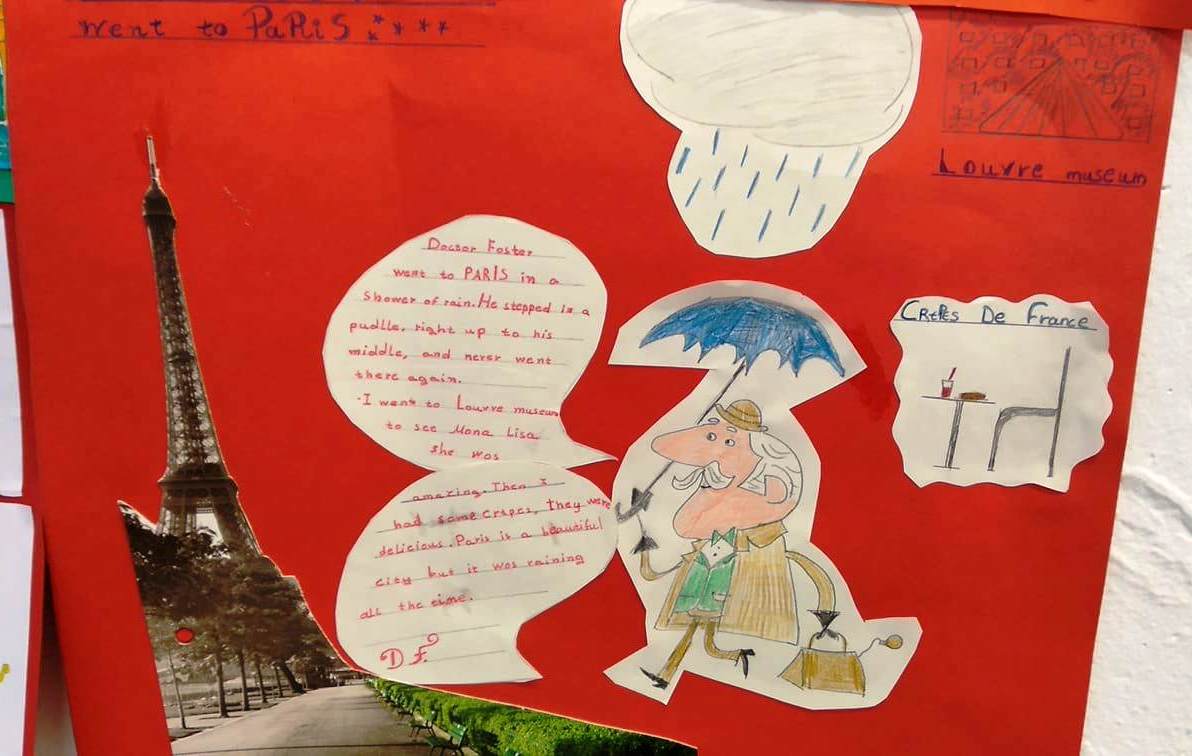 went to PaRiS
Louvre museum
Docsor Foster
went to PARIS in a
Shower of rain. He stepped in a
pudlle, right up to his
middle, and never went
there again.
I went to Louvre museum
to see Mona Lisa
She was
amazing. Then I
had some crepes, they were
delicious. Paris is a beautiful
city but it was raining
all the time.
D F.
CRePes De France